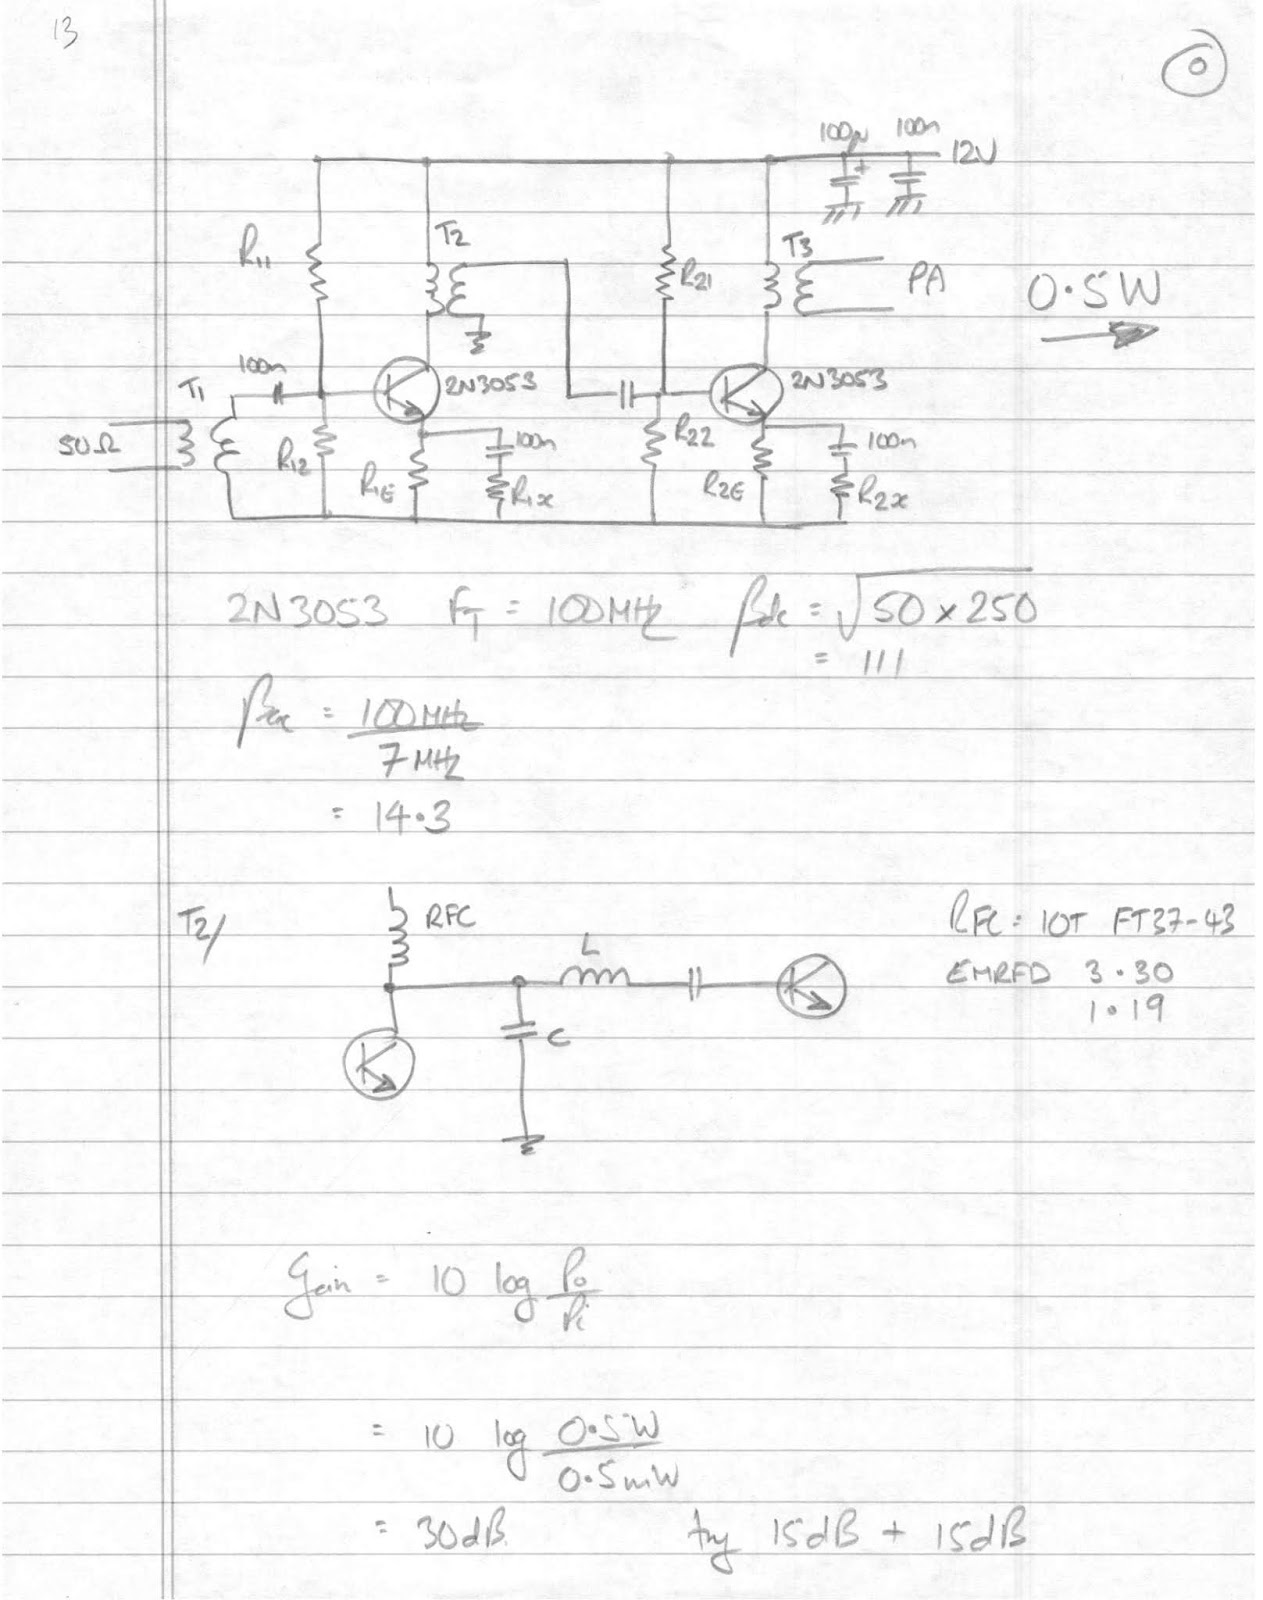 13
0
100µ 100n
12V
R11
T2
R21
T3
PA
0.5W
100n
T1
2N3053
2N3053
50Ω
R12
R1E
100n
R1x
R22
R2E
100n
R2x
2N3053 FT = 100MHz βdc = √50 x 250
= 111
βac = 100MHz
7MHz
= 14.3
T2/
RFC
L
C
RFC = 10T FT37-43
EMRFD 3.30
1.19
Gain = 10 log Po
Pi
= 10 log 0.5W
0.5mW
= 30dB try 15dB + 15dB